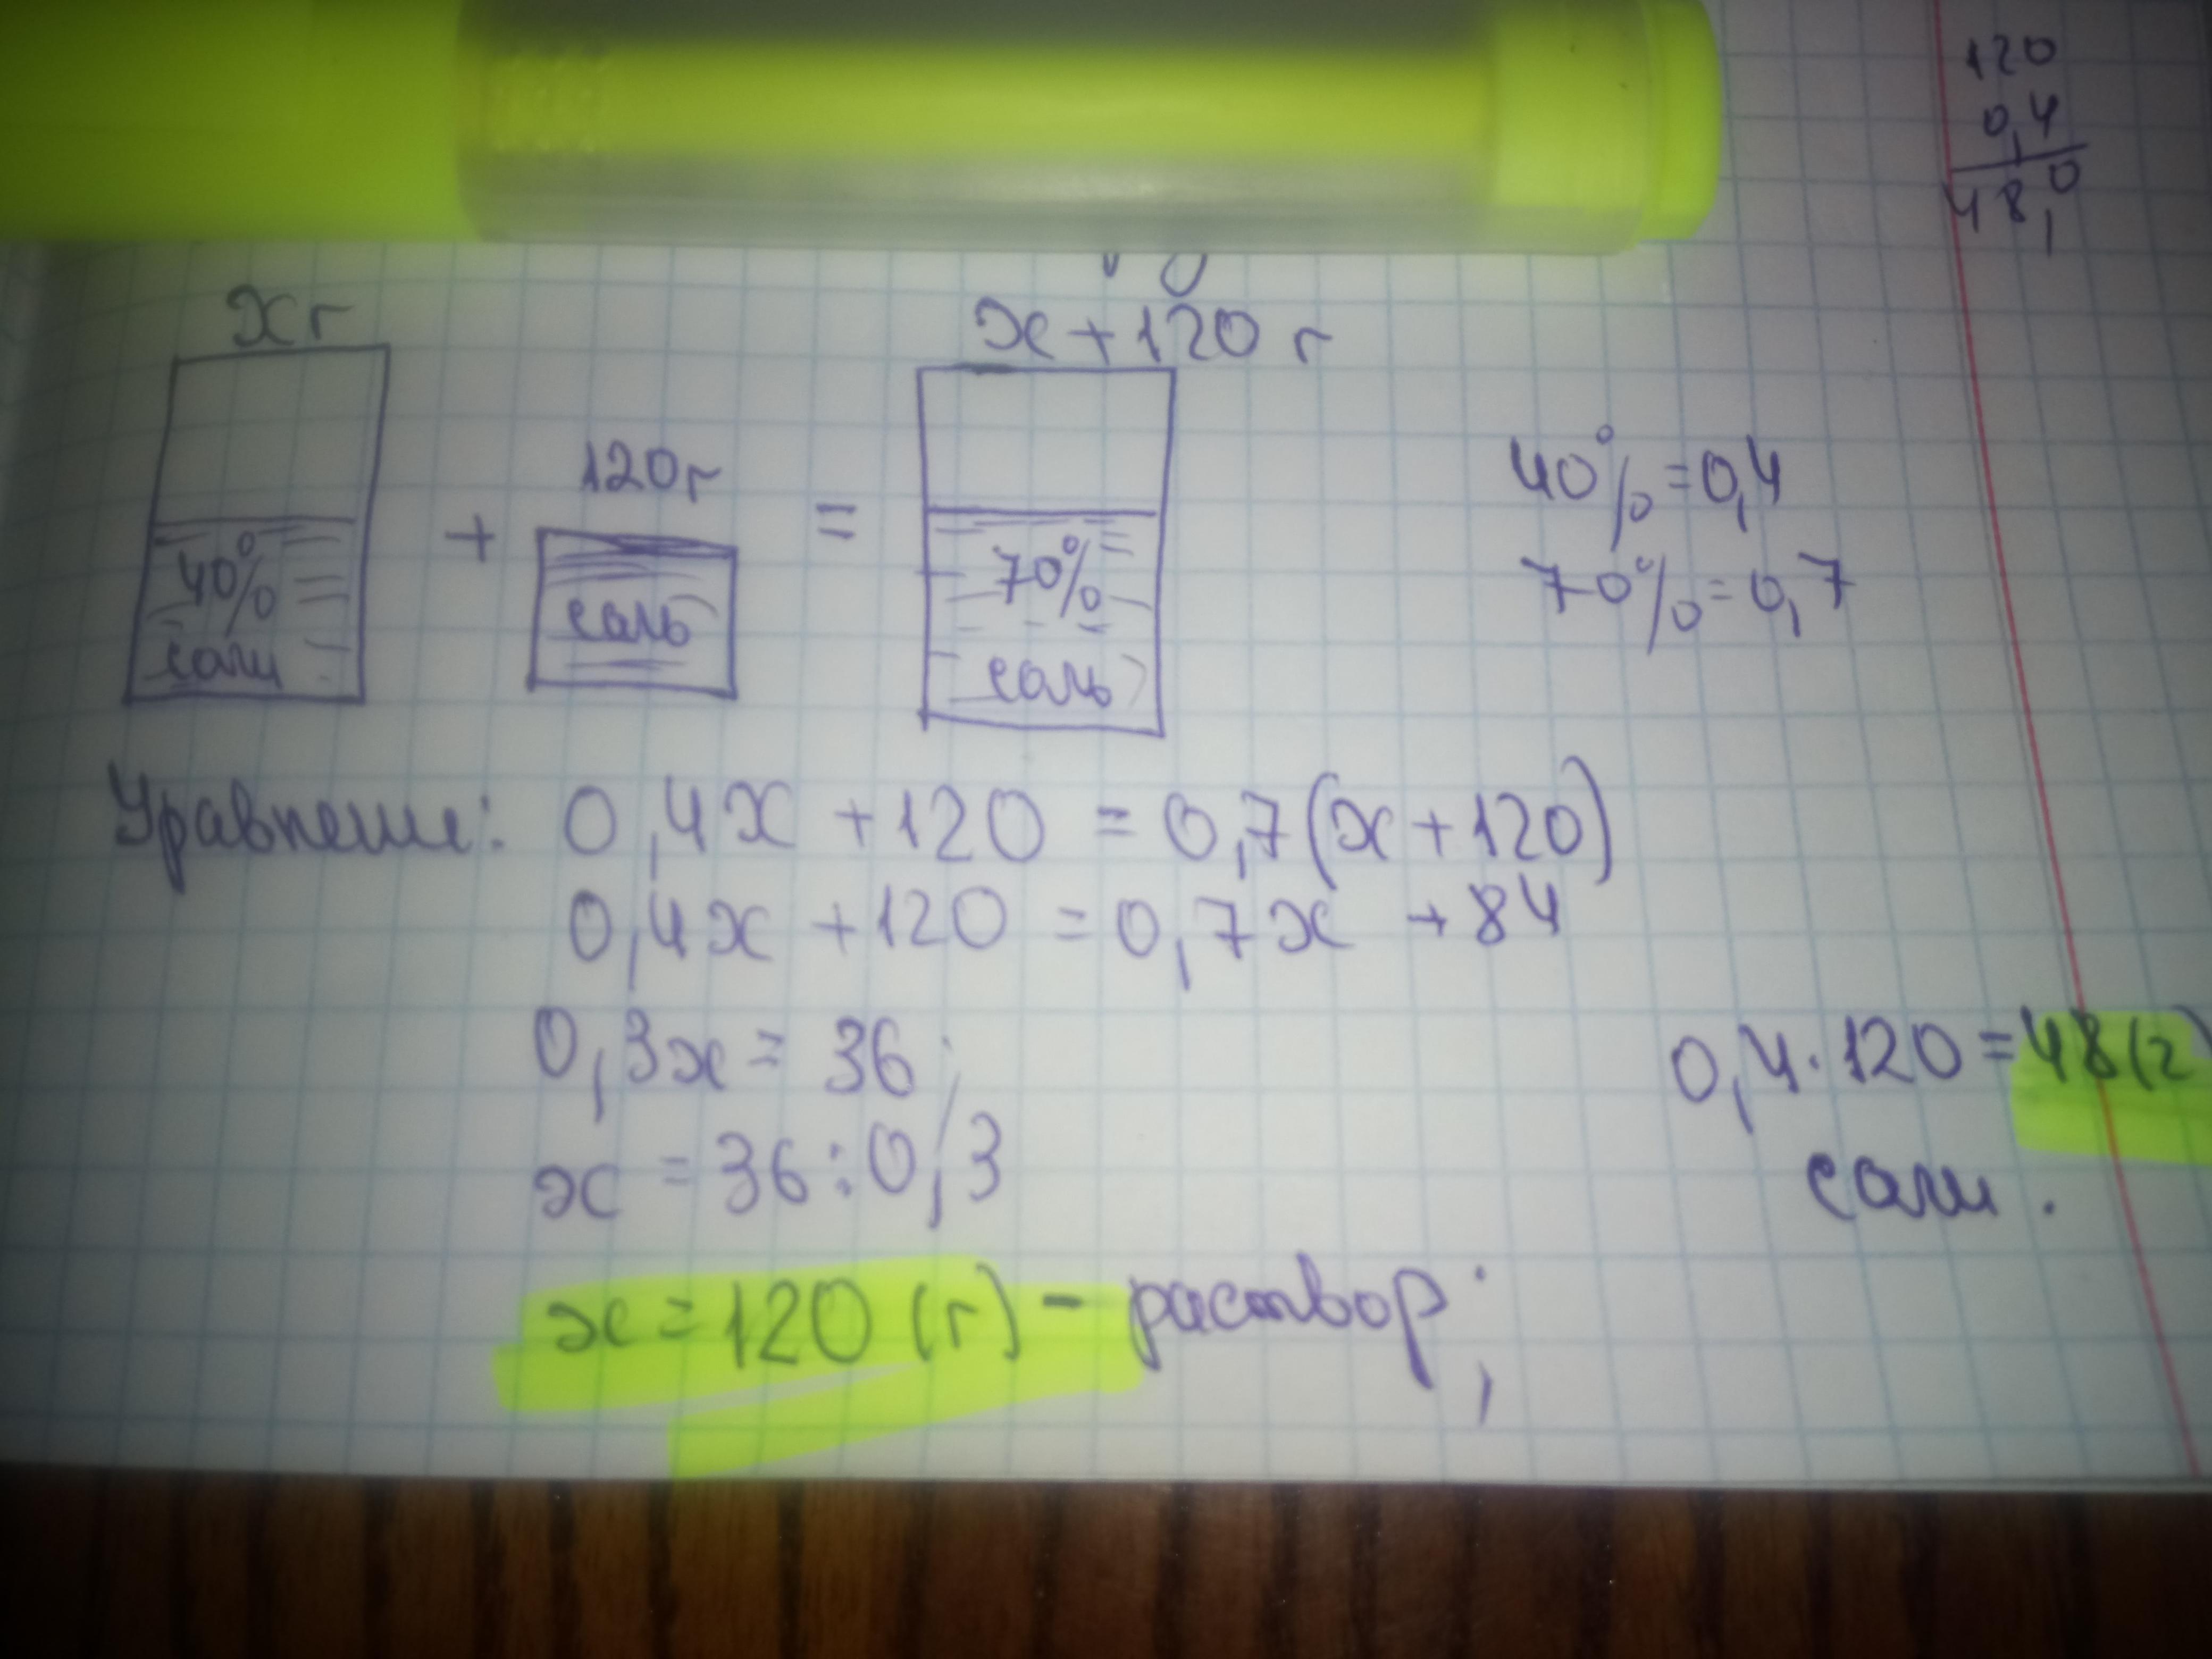 120
0,4
48,0
xг
x+120 г
120г
+
=
40%
соли
соль
70%
соль
40%=0,4
70%=0,7
Уравнение: 0,4x+120=0,7(x+120)
0,4x+120=0,7x+84
0,3x=36;
x=36:0,3
x=120(г)-раствор;
0,4·120=48(г)
соли.